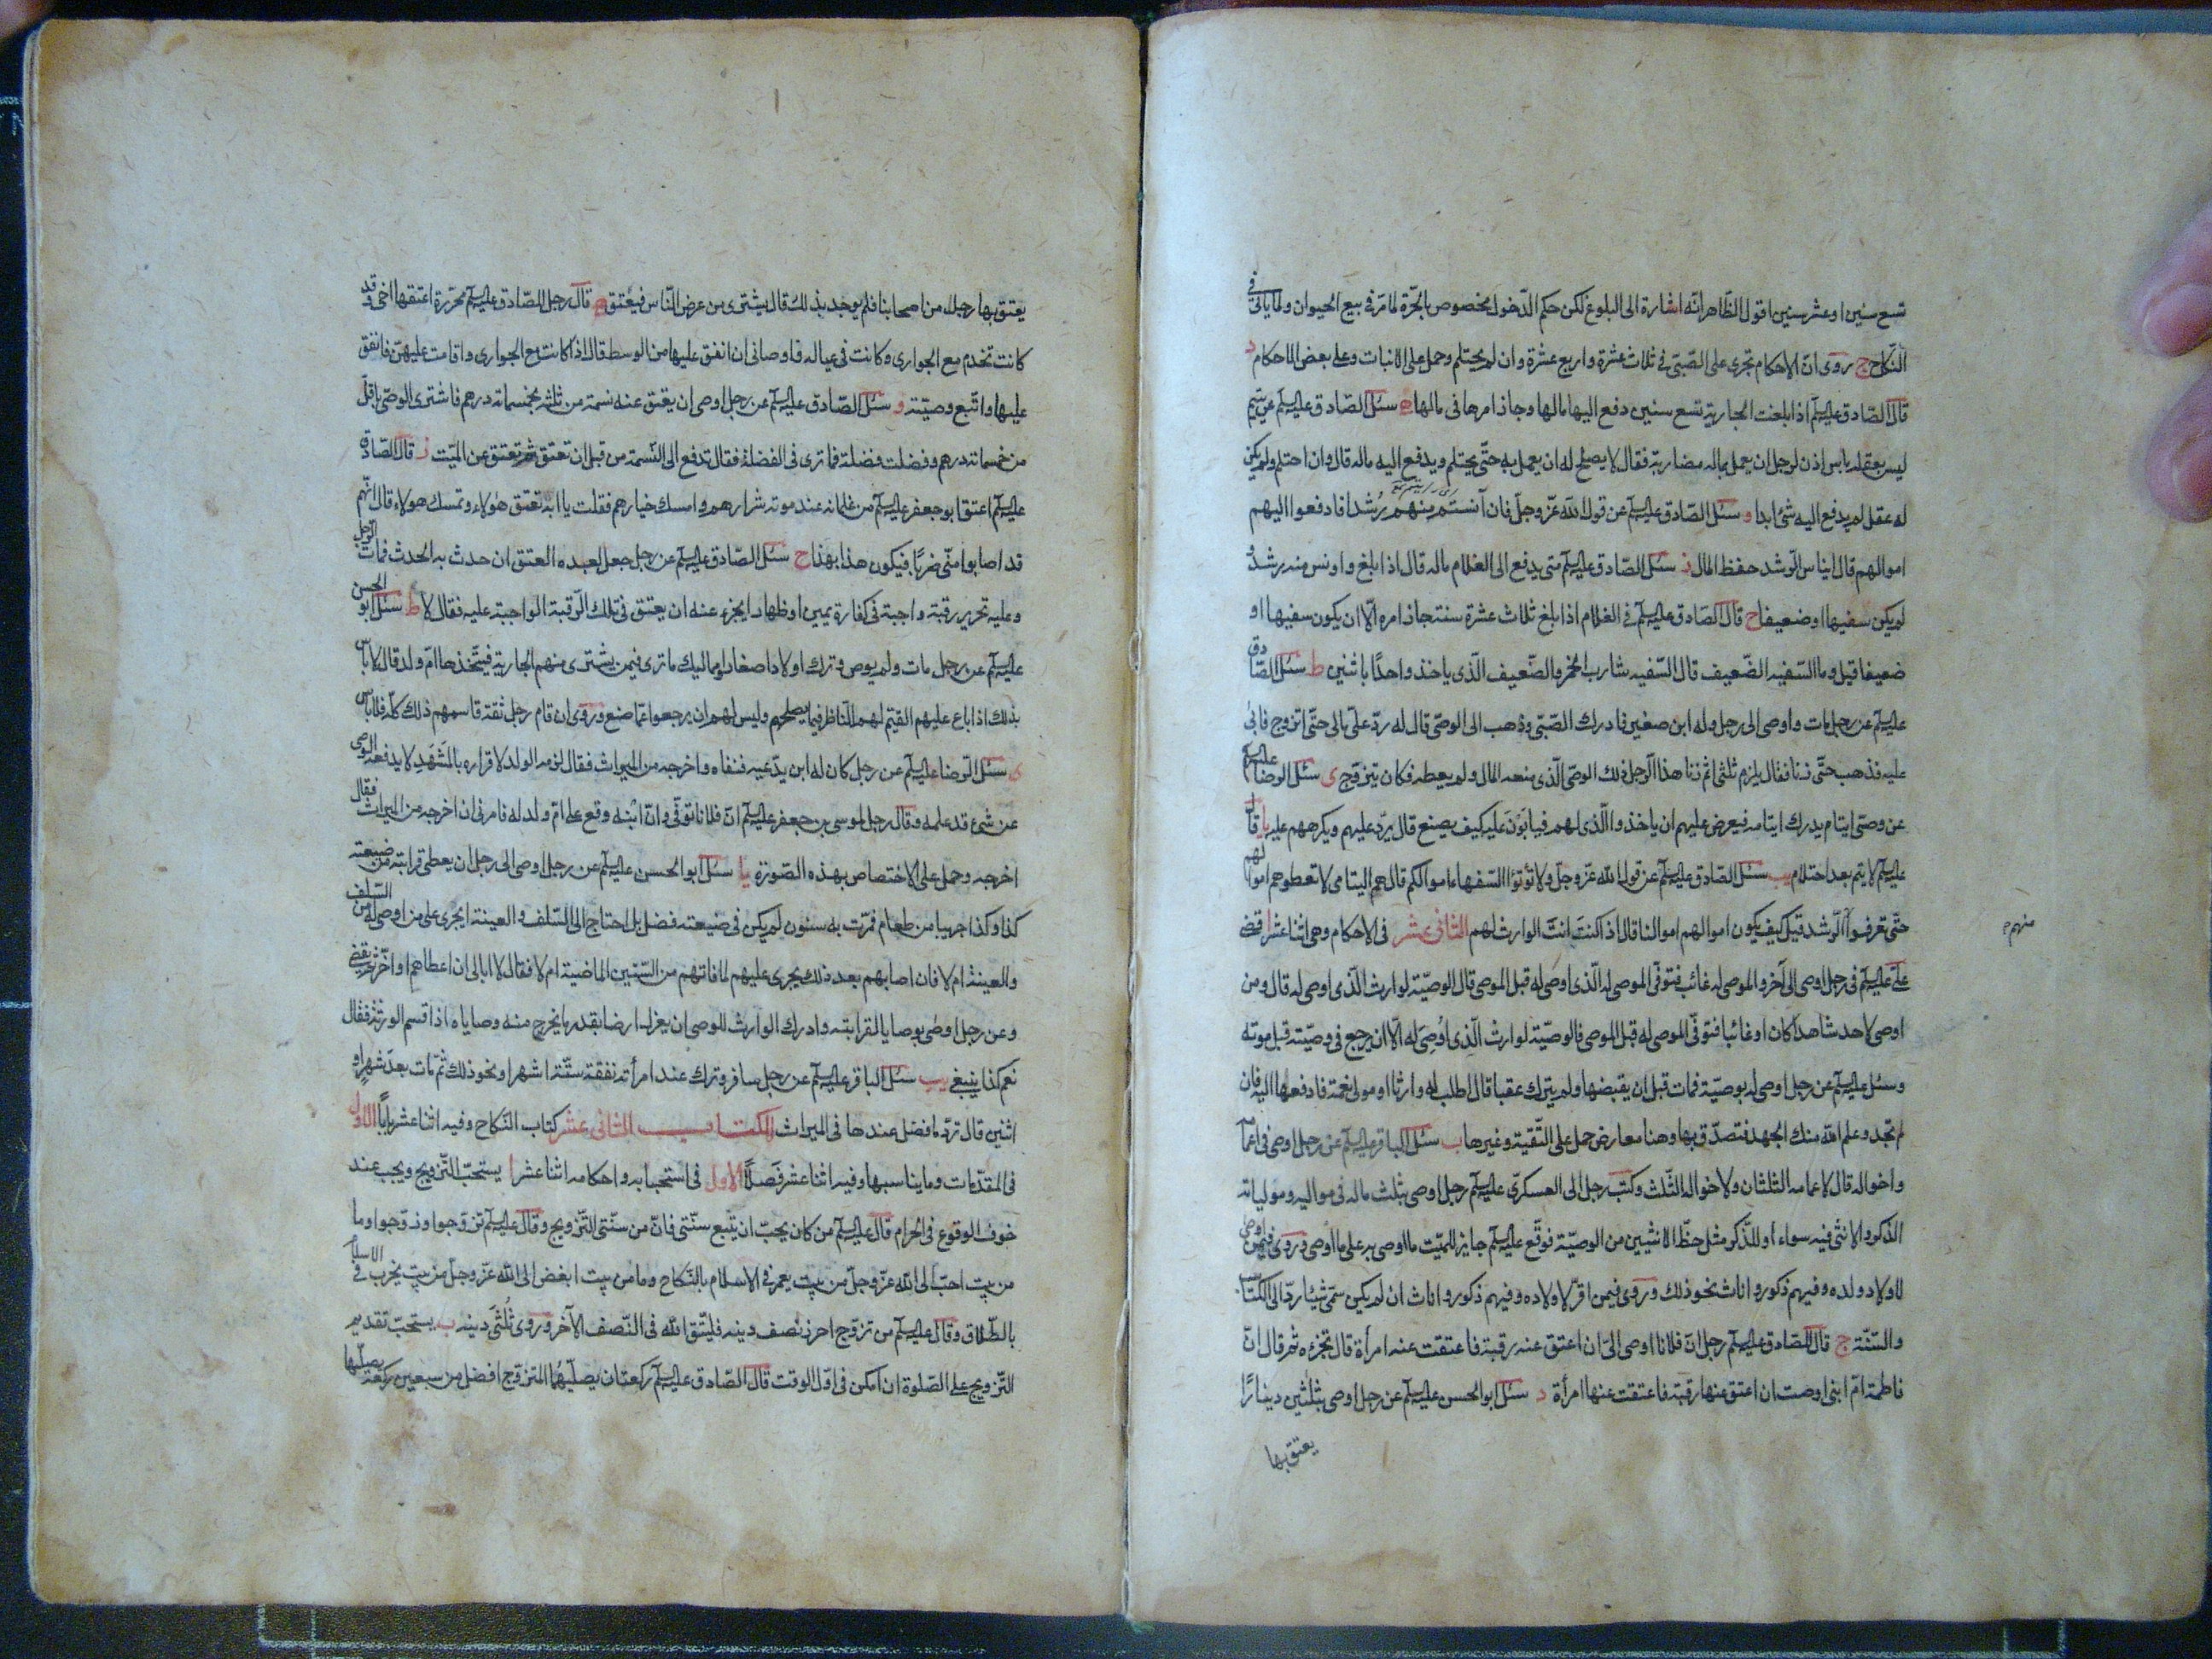 تسع سنين او عشر سنين اقول الظاهر انّه اشارة الى البلوغ لكن حكم الدّخول مخصوص بالحرّة لما مرّ فى بيع الحيوان ولما ياتى فى
النّكاح ج روى انّ الاحكام تجرى على الصّبىّ فى ثلاث عشرة واربع عشرة وان لم يحتلم وحمل على الانبات وعلى بعض الاحكام د
قال الصّادق عليه السلم اذا بلغت الجارية تسع سنين دفع اليها مالها وجاز امرها فى مالها ه سئل الصّادق عليه السلم عن يتيم
ليس بعقله باس اذن لرجل ان يعمل بماله مضاربة فقال لا يصلح له ان يعمل به حتّى يحتلم ويدفع اليه ماله قال وان احتلم ولم يكن
له عقل لم يدفع اليه شئ ابدا و سئل الصّادق عليه السلم عن قول الله عزّ وجلّ فان آنستم منهم رشدا فادفعوا اليهم
اموالهم قال ايناس الرّشد حفظ المال ز سئل الصّادق عليه السلم متى يدفع الى الغلام ماله قال اذا بلغ واونس منه رشد و
لم يكن سفيها او ضعيفا ح قال الصّادق عليه السلم فى الغلام اذا بلغ ثلاث عشرة سنة جاز امره الّا ان يكون سفيها او
ضعيفا قيل وما السّفيه الضّعيف قال السّفيه شارب الخمر والضّعيف الّذى ياخذ واحدًا باثنين ط سئل الصّادق
عليه السلم عن رجل مات واوصى الى رجل وله ابن صغير فادرك الصّبى وذهب الى الوصىّ قال له ردّ علىّ مالى حتّى اتزوج فابى
عليه فذهب حتّى زنا فقال يلزم ثلثى اثم زنا هذا الرّجل ذلك الوصىّ الّذى منعه المال ولم يعطه فكان يتزوّج ى سئل الرضا عليه السلم
عن وصىّ ايتام يدرك ايتامه فيعرض عليهم ان ياخذوا الّذى لهم فيابون عليه كيف يصنع قال يردّ عليهم ويكرههم عليه يا قال
عليه السلم لا يتم بعد احتلام يب سئل الصّادق عليه السلم عن قول الله عزّ وجلّ ولا تؤتوا السّفهاء اموالكم قال هم اليتامى لا تعطوهم اموالهم
حتّى تعرفوا الرّشد قيل كيف يكون اموالهم اموالنا قال اذا كنت انت الوارث لهم الثانى عشر فى الاحكام وهى اثنا عشر ا قضى
منهم
علىّ عليه السلم فى رجل اوصى الى آخر والموصى له غائب فتوفّى الموصى له الّذى اوصى له قبل الموصى قال الوصيّة لوارث الّذى اوصى له قال ومن
اوصى لاحد شاهدا كان او غائبا فتوفّى الموصى له قبل الموصى فالوصيّة لوارث الّذى اوصى له الّا ان يرجع فى وصيّته قبل موته
وسئل عليه السلم عن رجل اوصى له بوصيّة فمات قبل ان يقبضها ولم يترك عقبا قال اطلب له وارثا او مولى نعمة فادفعها اليه فان
لم تجد وعلم الله منك الجهد فتصدّق بها وهنا معارض حمل على التّقيّة وغيرها ب سئل الباقر عليه السلم عن رجل اوصى فى اعمامه
واخواله قال لاعمامه الثلثان ولاخواله الثّلث وكتب رجل الى العسكرىّ عليه السلم رجل اوصى بثلث ماله فى مواليه ومولياته
الذّكر والانثى فيه سواء او للذّكر مثل حظّ الانثيين من الوصيّة فوقّع عليه السلم جايز للميّت ما اوصى به على ما اوصى وروى فيمن اوصى
لاولاد ولده وفيهم ذكور واناث نحو ذلك وروى فيمن اقرّ لاولاده وفيهم ذكور واناث ان لم يكن سمّى شيئا ردّ الى الكتاب
والسّنّة ج قال للصّادق عليه السلم رجل انّ فلانا اوصى الىّ ان اعتق عنه رقبة فاعتقت عنه امرأة قال تجزءه ثم قال انّ
فاطمة امّ ابنى اوصت ان اعتق عنها رقبة فاعتقت عنها امرأة د سئل ابو الحسن عليه السلم عن رجل اوصى بثلثين دينارًا
يعتق بها
يعتق بها رجل من اصحابنا فلم يوجد بذلك قال يشترى من عرض النّاس فيعتق ه قال رجل للصّادق عليه السلم محرّرة اعتقها اخى وقد
كانت تخدم مع الجوارى وكانت فى عياله فاوصانى ان انفق عليها من الوسط قال اذا كانت مع الجوارى واقامت عليهنّ فانفق
عليها واتّبع وصيّته و سئل الصّادق عليه السلم عن رجل اوصى ان يعتق عنه نسمة من ثلثه بخمسمائة درهم فاشترى الوصىّ باقلّ
من خمسمائة درهم وفضلت فضلة فما ترى فى الفضلة فقال تدفع الى النّسمة من قبل ان تعتق ثم تعتق عن الميّت ز قال الصّادق
عليه السلم اعتق ابو جعفر عليه السلم من غلمانه عند موته شرارهم وامسك خيارهم فقلت يا ابه تعتق هؤلاء وتمسك هولاء قال انّهم
قد اصابوا منّى ضربًا فيكون هذا بهذا ح سئل الصّادق عليه السلم عن رجل جعل لعبده العتق ان حدث به الحدث فمات الرّجل
وعليه تحرير رقبة واجبة فى كفارة يمين او ظهار ايجزء عنه ان يعتق فى تلك الرّقبة الواجبة عليه فقال لا ط سئل ابو الحسن
عليه السلم عن رجل مات ولم يوص وترك اولادا صغارا ومماليك ما ترى فيمن يشترى منهم الجارية فيتّخذها امّ ولد قال لا باس
بذلك اذا باع عليهم القيّم لهم النّاظر فيما يصلحهم وليس لهم ان يرجعوا عمّا صنع وروى ان قام رجل ثقة قاسمهم ذلك كلّه فلا باس
ى سئل الرّضا عليه السلم عن رجل كان له ابن يدّعيه فنفاه واخرجه من الميراث فقال لزمه الولد لاقراره بالمشهد لا يدفعه الوصى
عن شئ قد علمه وقال رجل لموسى بن جعفر عليه السلم انّ فلانا توفّى وانّ ابنه وقع على امّ ولد له فامرنى ان اخرجه من الميراث فقال
اخرجه وحمل على الاختصاص بهذه الصّورة يا سئل ابو الحسن عليه السلم عن رجل اوصى الى رجل ان يعطى قرابته من ضيعته
كذا وكذا جريبا من طعام فمرّت به سنون لم يكن فى ضيعته فضل بل احتاج الى السّلف والعينة ايجرى على من اوصى له من السّلف
والعينة ام لا فان اصابهم بعد ذلك يجرى عليهم لما فاتهم من السّنين الماضية ام لا فقال لا ابالى ان اعطاهم او اخّر ثم يقضى
وعن رجل اوصى بوصايا لقرابته وادرك الوارث للوصى ان يعزل ارضا بقدر ما يخرج منه وصاياه اذا قسم الورثة فقال
نعم كذا ينبغى يب سئل الباقر عليه السلم عن رجل سافر وترك عند امرأته نفقة ستّة اشهر او نحو ذلك ثم مات بعد شهر او
اثنين قال تردّ ما فضل عندها فى الميراث الكتاب الثانى عشر كتاب النّكاح وفيه اثنا عشر بابًا الاول
فى المقدّمات وما يناسبها وفيه اثنا عشر فصلًا الاول فى استحبابه واحكامه اثنا عشر ا يستحبّ التّزويج ويجب عند
خوف الوقوع فى الحرام قال عليه السلم من كان يحبّ ان يتّبع سنّتى فانّ من سنّتى التّزويج وقال عليه السلم تزوّجوا وزوّجوا وما
من بيت احبّ الى الله عزّ وجلّ من بيت يعمر فى الاسلام بالنّكاح وما من بيت ابغض الى الله عزّ وجلّ من بيت يخرب فى الاسلام
بالطّلاق وقال عليه السلم من تزوّج احرز نصف دينه فليتّق الله فى النّصف الآخر وروى ثلثى دينه ب يستحبّ تقديم
التّزويج على الصّلوة ان امكن فى اوّل الوقت قال الصّادق عليه السلم ركعتان يصلّيهما المتزوّج افضل من سبعين ركعة يصلّيها